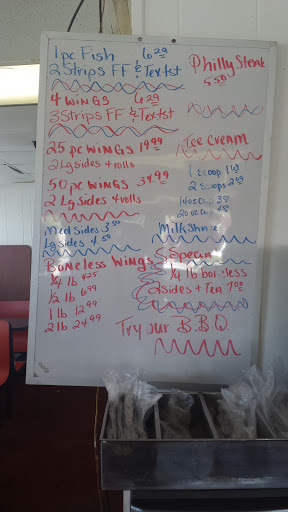 1 pc Fish 6.29
2 Strips FF & Tex tst
Philly Steak
5.50
4 wings 6.29
3 Strips FF & Tex tst
25 pc wings 19.99
2 Lg Sides 4 rolls
50 pc wings 34.99
2 Lg Sides 4 rolls
Ice Cream
1 scoop
2 scoops
14oz
20oz
Med Sides 3.50
Lg Sides 4.50
Milk Shake
Boneless Wings
1/4 lb 4.25
1/2 lb 6.99
1 lb 12.99
2 lb 24.99
Special
1/4 lb boneless
2 sides + Tea 7.00
Try our B.B.Q.